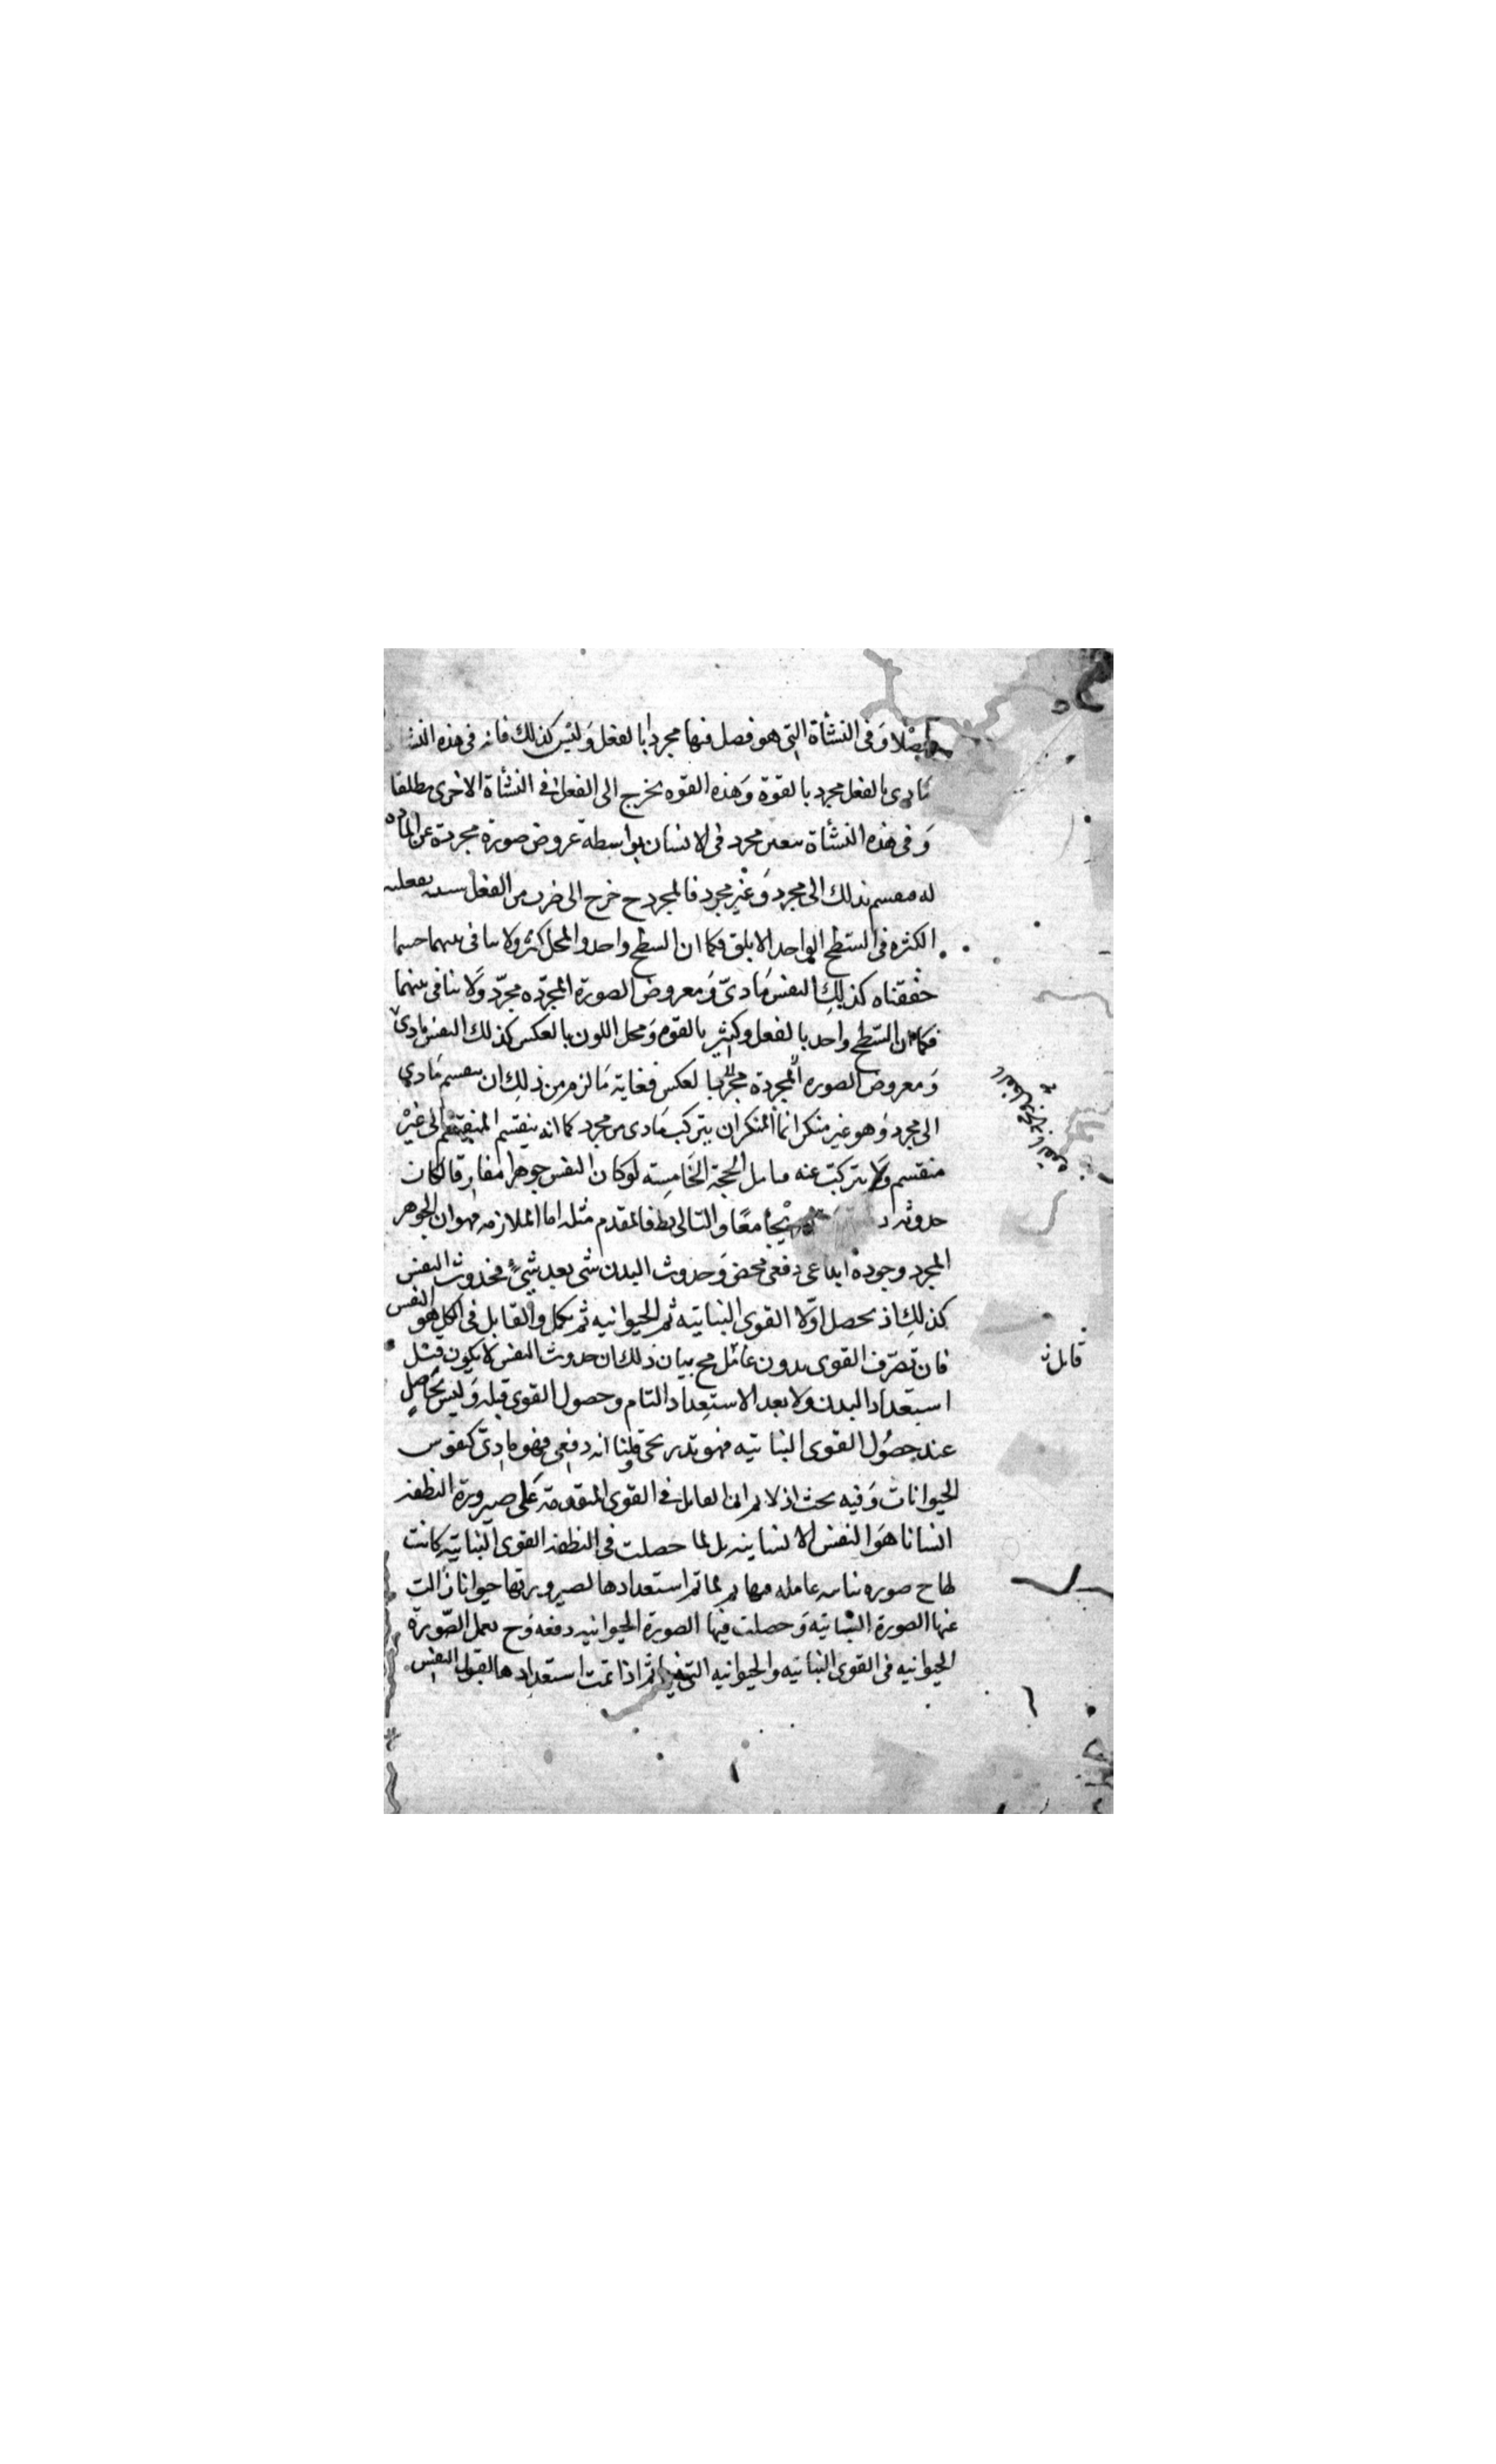 وَفى النشأة التى هو فصل فيها مجردا بالفعل وَليْسَ كذلك فانه فى هذه النشا
مادى بالفعل مجرد بالقوة وَهذه القوه يخرج الى الفعل فى النشأة الاخرى مطلقا
وَ فى هذه النشأة مجرد فى الانسان بواسطة عروض صورة مجردة عن المادّه
له بذلك الى مجرد وَ غير مجرد فالمجرد ح خرج الى ضرب من الفعل
الكثره فى السّطح الواحد الابلق فكما ان السطح واحد والمحل كثير ولا منافى بينهما حسبما
حققناه كذلِكَ النفس مَادىّ وَمعروض الصورة المجرّده مجرّد وَلا منافى بينهما
فكما ان السّطح واحد بالفعل وكثير بالقوه وَمحل اللون بالعكس كذلك النفس مادىّ
وَمعروض الصوره المجردة مجرد بالعكس فغاية مَا لزم من ذلِكَ ان ينقسم مَادى
الى مجرد وَهو غير منكر انما المنكر ان يتركب مَادى من مجرد كما انه ينقسم المنقسم الى غيْر
منقسم وَلا يتركبُ عنه الحجة الخامِسَه لو كان النفس جوهرا مفارقا لكان
حدوثه معًا وَالتالى بط فالمقدم مثله اما الملازمه فهو ان الجوهر
المجرد وجوده ابداعى دفعى محض وَحدوث البدن شئ بعد شئٍ فحدوث النفس
كذلِكَ اذ يحصل اوّلا القوى النباتيه ثم الحيوانيه ثم يكمل والقابل فى الكل هو النفس
فان تصرّف القوى بدون عامل مح بيان ذلك ان حدوث النفس لا يكون قبْل
استعداد البدن وَلا بعد الاستِعداد التام وحصول القوى قبله وَليسَ بحاصلٍ
عند حصُول القوى النباتيه فهو تدريجى قلنا انه دفعى فهو مادىّ كنفوس
الحيوانات وَفيه بحث اذ لا نم ان العامل فى القوى المتقدمة عَلى صيرورة النطفه
انسانا هوَ النفس الانسانيه بل لما حصلت فى النطفه القوى النباتيه كانت
لها ح صوره نباتيه عامله فيها ثم لما تم استعدادها لصيرورتها حيوانا زالت
عنها الصورة النباتيه وَحصلت فيها الصورة الحيوانيه دفعه وَح يعمل الصّورة
الحيوانيه فى القوى النباتيه والحيوانيه التى فيها ثم اذا تمت استعدادها لقبول النفس
قابل